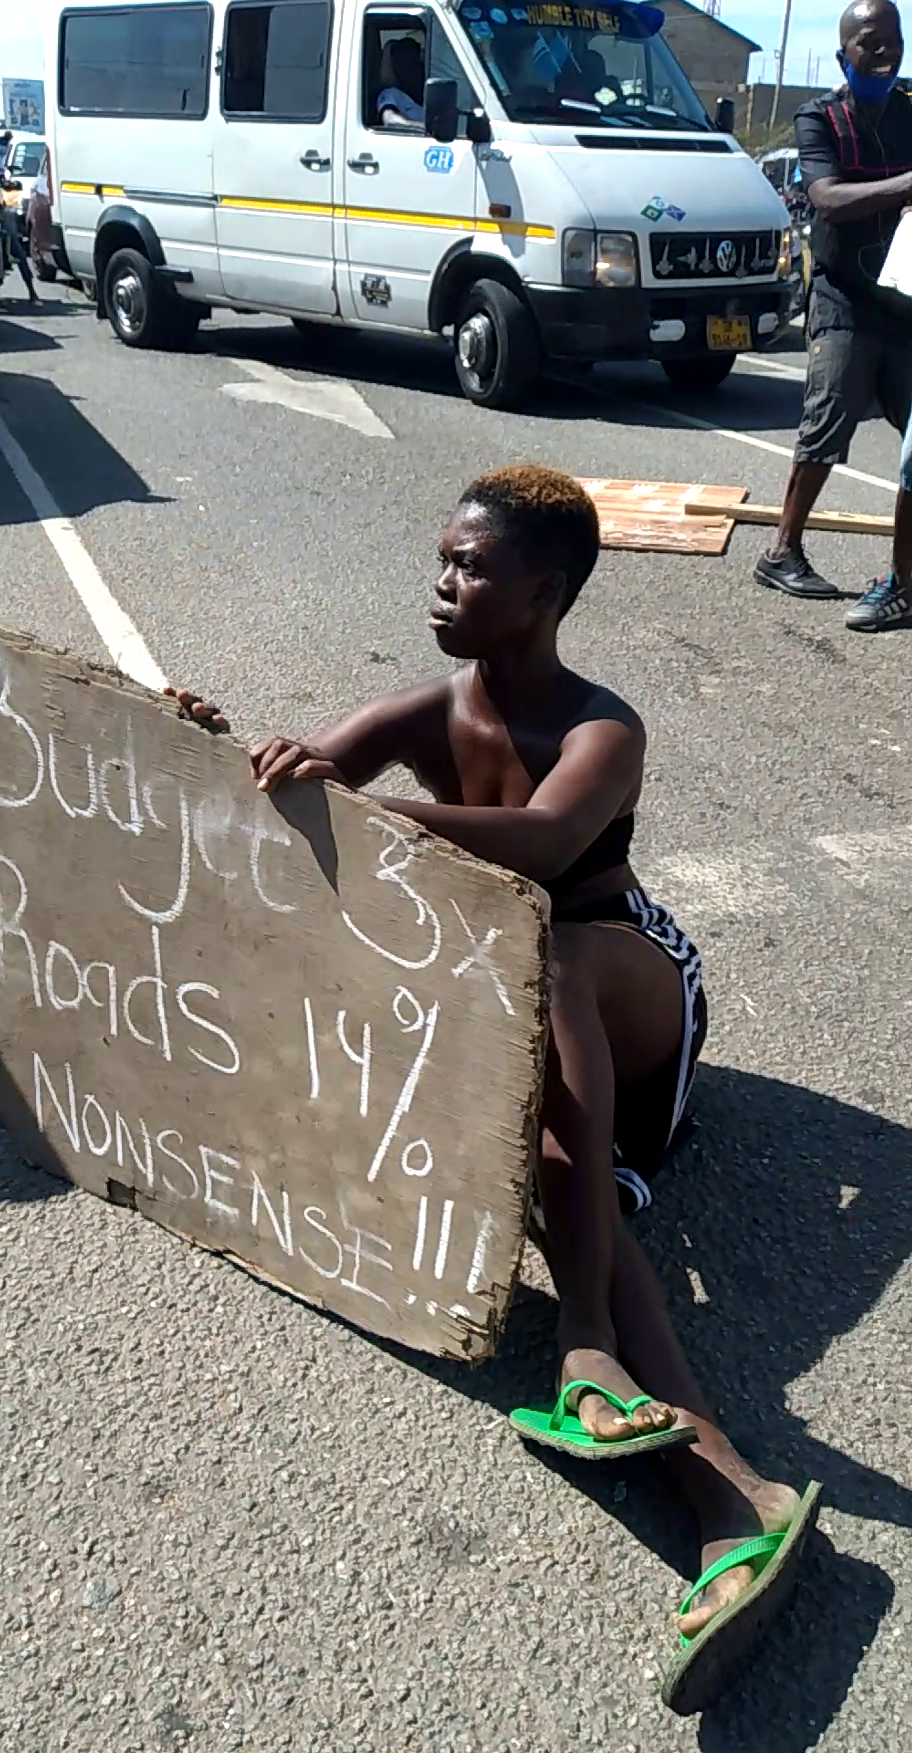 HUMBLE THY SELF
GH
Budget 3x
Roads 14%
NONSENSE!!!